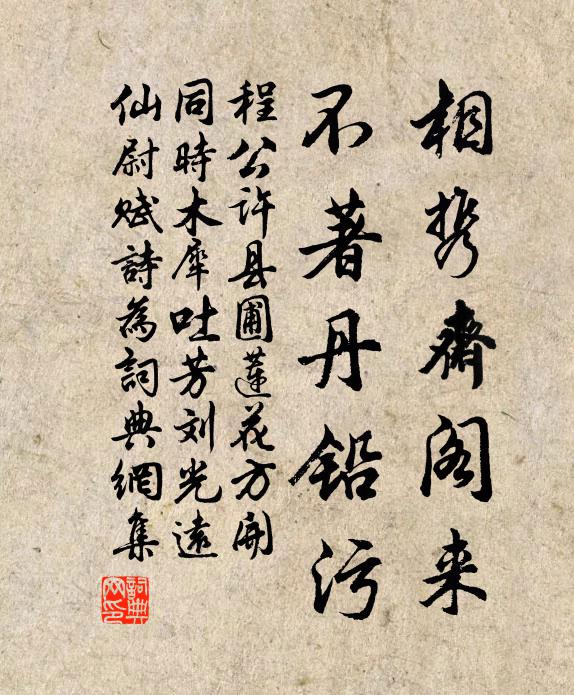 相携斋阁来
不著丹铅污
程公许县圃莲花方开
同時木犀吐芳刘光遠
仙尉赋詩為詞典網集
詞典网印